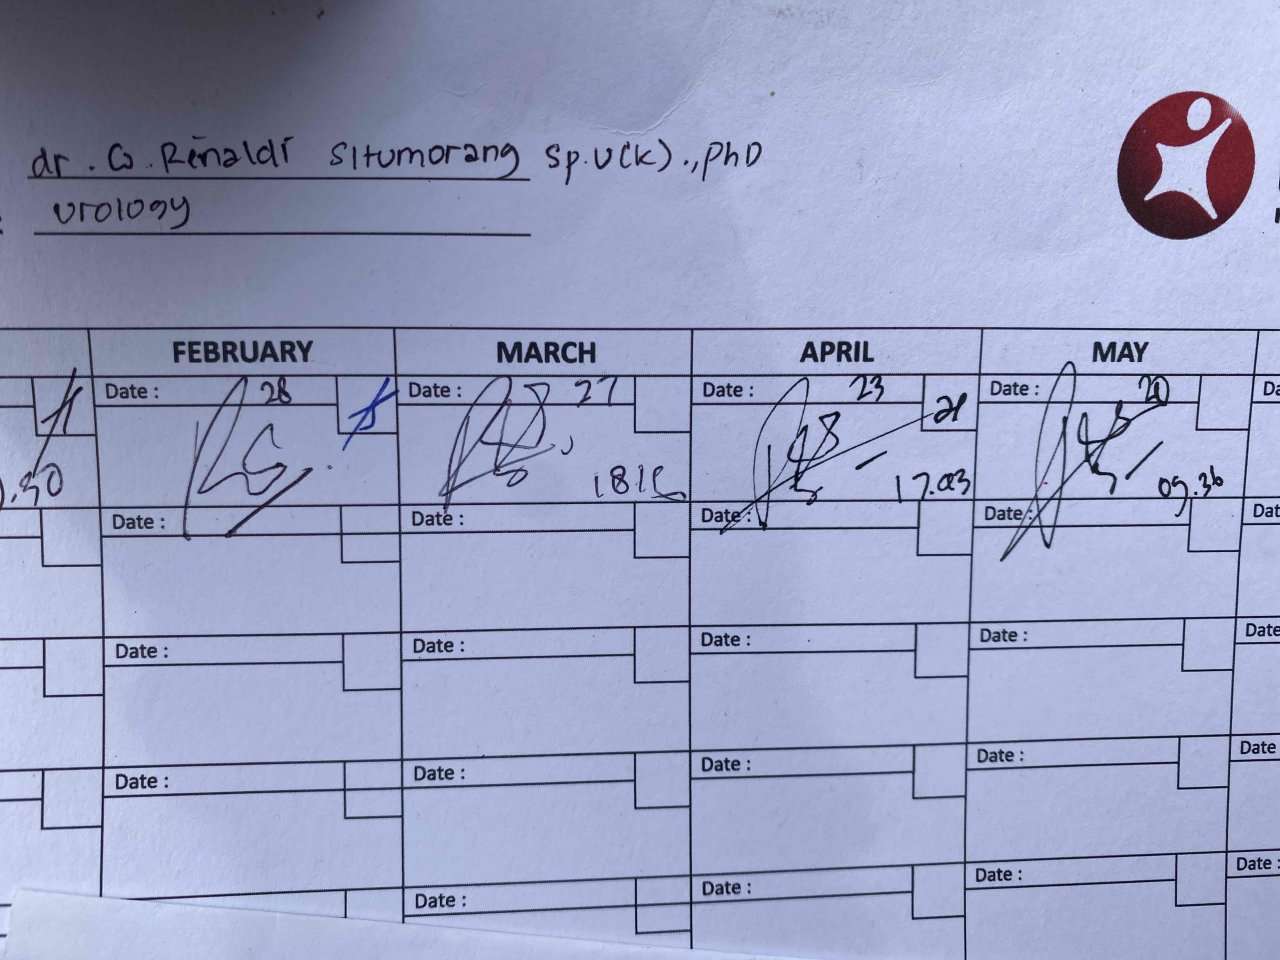 dr. G. Rinaldi Situmorang Sp.U(K)., PhD
urology
FEBRUARY MARCH APRIL MAY
Date : 28 Date : 27 Date : 23 Date : 20
.30 17.03 09.36
Date : Date : Date : Date : Dat
Date : Date : Date : Date : Date
Date : Date : Date : Date : Date
Date : Date : Date : Date :